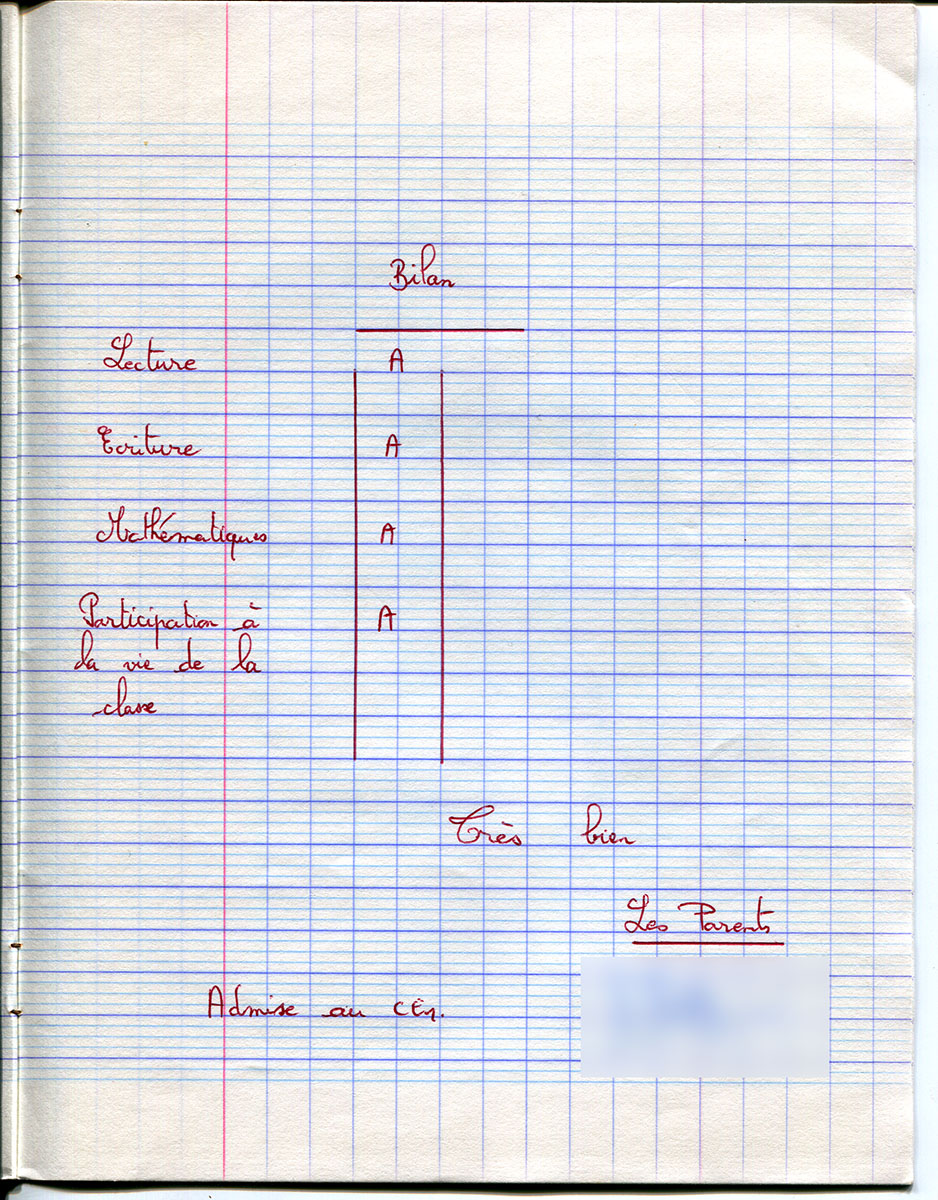 Bilan
Lecture A
Ecriture A
Mathématiques A
Participation à A
la vie de la
classe
Très bien
Les Parents
Admise au CE1.